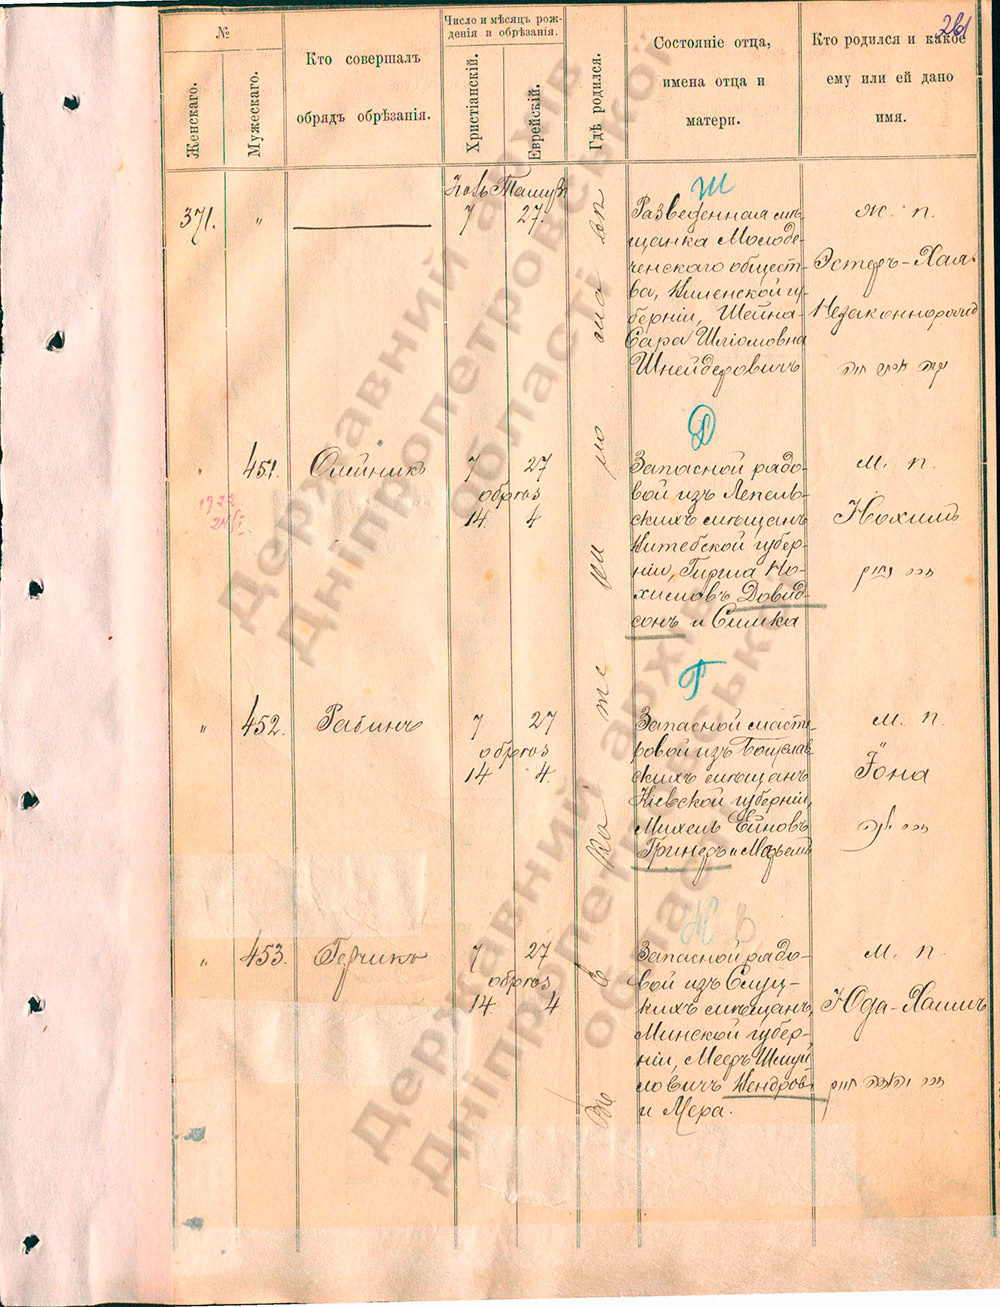 261
№
Женскаго.
Мужескаго.
Кто совершалъ
обрядъ обрѣзанія.
Число и мѣсяцъ рож-
денія и обрѣзанія.
Христіанскій.
Еврейскій.
Гдѣ родился.
Состояніе отца,
имена отца и
матери.
Кто родился и какое
ему или ей дано
имя.
371.
"
7
27.
Ш
Разведенная мѣ-
щанка Молоде-
ченскаго общест-
ва, Виленской гу-
берніи, Шейна-
Сара Шліомовна
Шнейдеровичъ
ж. п.
Эстеръ-Хая
Незаконнорожд
"
451.
1922
Олейникъ
7 27
обрѣз
14 4
Д
Запасной рядо-
вой изъ Лепель-
скихъ мѣщанъ
Витебской губер-
ніи, Гирша Но-
химовъ Довид-
сонъ и Симка
м. п.
Нохимъ
"
452.
Рабинъ
7 27
обрѣз
14 4.
Г
Запасной масте-
ровой изъ Богуслав
скихъ мѣщанъ
Кіевской губерніи,
Михель Ейновъ
Гринеръ и Марьемъ
м. п.
Іона
"
453.
Герчикъ
7 27
обрѣз
14. 4
Запасной рядо-
вой изъ Слуц-
кихъ мѣщанъ,
Минской губер-
ніи, Мееръ Шмуй
ловичъ Кендров
и Мера.
м. п.
Юда-Хаимъ
Державний архів
Дніпропетровської
області
Державний архів
Дніпропетровської
області